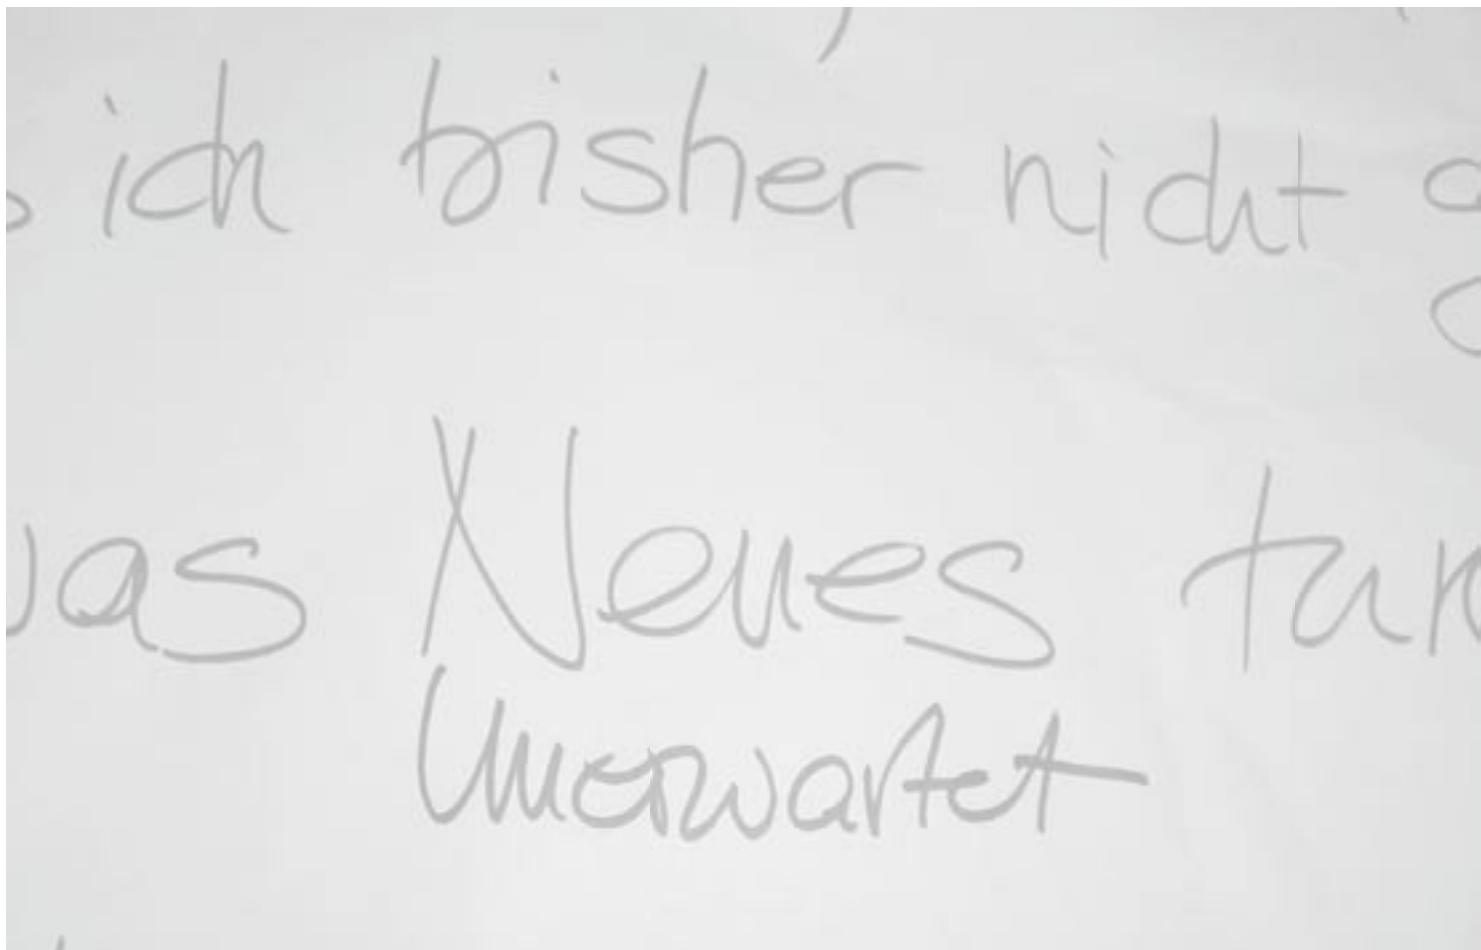 ich bisher nicht
Neues
Unerwartet